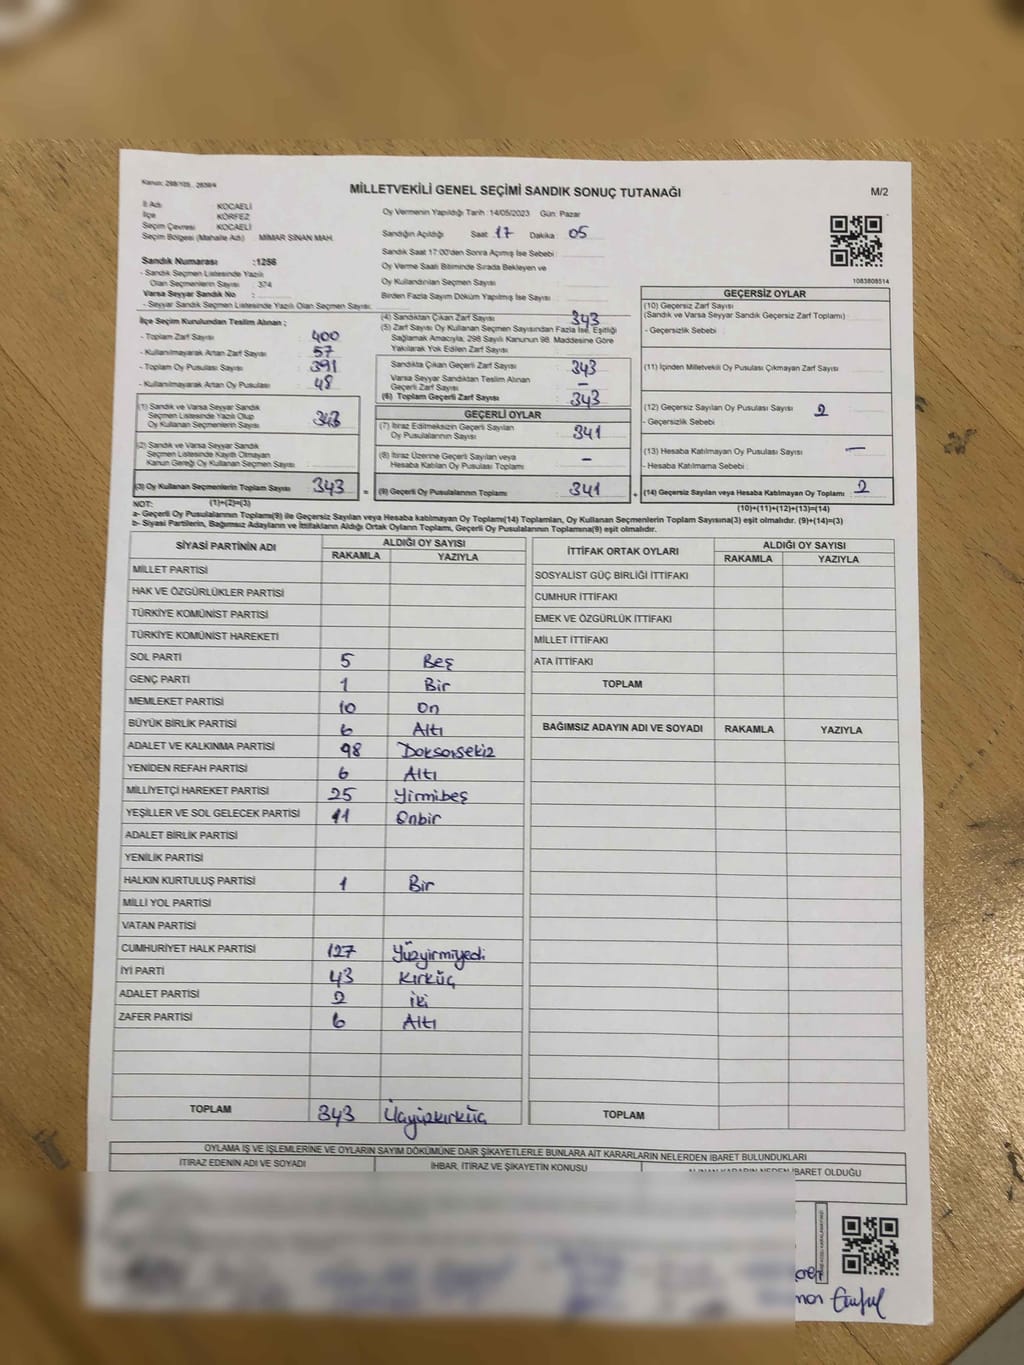 Kanun: 298/105., 2839/4
MİLLETVEKİLİ GENEL SEÇİMİ SANDIK SONUÇ TUTANAĞI
M/2
İl Adı KOCAELİ
İlçe KÖRFEZ
Seçim Çevresi KOCAELİ
Seçim Bölgesi (Mahalle Adı) MİMAR SİNAN MAH.
Oy Vermenin Yapıldığı Tarih :14/05/2023 Gün: Pazar
Sandığın Açıldığı Saat : 17 Dakika : 05
Sandık Saat 17:00'den Sonra Açılmış İse Sebebi :
Oy Verme Saati Bitiminde Sırada Bekleyen ve
Oy Kullandırılan Seçmen Sayısı :
Birden Fazla Sayım Döküm Yapılmış İse Sayısı :
1083808514
Sandık Numarası :1256
- Sandık Seçmen Listesinde Yazılı
Olan Seçmenlerin Sayısı : 374
Varsa Seyyar Sandık No :
- Seyyar Sandık Listesinde Yazılı Olan Seçmen Sayısı:
İlçe Seçim Kurulundan Teslim Alınan ;
- Toplam Zarf Sayısı : 400
- Kullanılmayarak Artan Zarf Sayısı : 57
- Toplam Oy Pusulası Sayısı : 391
- Kullanılmayarak Artan Oy Pusulası : 48
(1) Sandık ve Varsa Seyyar Sandık
Seçmen Listesinde Yazılı Olup
Oy Kullanan Seçmenlerin Sayısı : 343
(2) Sandık ve Varsa Seyyar Sandık
Seçmen Listesinde Kayıtlı Olmayan
Kanun Gereği Oy Kullanan Seçmen Sayısı :
(3) Oy Kullanan Seçmenlerin Toplam Sayısı : 343
(1)+(2)=(3)
(4) Sandıktan Çıkan Zarf Sayısı : 343
(5) Zarf Sayısı Oy Kullanan Seçmen Sayısından Fazla İse, Eşitliği
Sağlamak Amacıyla, 298 Sayılı Kanunun 98. Maddesine Göre
Yakılarak Yok Edilen Zarf Sayısı :
Sandıkta Çıkan Geçerli Zarf Sayısı : 343
Varsa Seyyar Sandıktan Teslim Alınan
Geçerli Zarf Sayısı : -
(6) Toplam Geçerli Zarf Sayısı : 343
GEÇERLİ OYLAR
(7) İtiraz Edilmeksizin Geçerli Sayılan
Oy Pusulalarının Sayısı : 341
(8) İtiraz Üzerine Geçerli Sayılan veya
Hesaba Katılan Oy Pusulası Toplamı : -
= (9) Geçerli Oy Pusulalarının Toplamı : 341
GEÇERSİZ OYLAR
(10) Geçersiz Zarf Sayısı
(Sandık ve Varsa Seyyar Sandık Geçersiz Zarf Toplamı) :
- Geçersizlik Sebebi :
(11) İçinden Milletvekili Oy Pusulası Çıkmayan Zarf Sayısı :
(12) Geçersiz Sayılan Oy Pusulası Sayısı : 2
- Geçersizlik Sebebi :
(13) Hesaba Katılmayan Oy Pusulası Sayısı : -
- Hesaba Katılmama Sebebi :
+ (14) Geçersiz Sayılan veya Hesaba Katılmayan Oy Toplamı : 2
(10)+(11)+(12)+(13)=(14)
NOT:
a- Geçerli Oy Pusulalarının Toplamı(9) ile Geçersiz Sayılan veya Hesaba katılmayan Oy Toplamı(14) Toplamları, Oy Kullanan Seçmenlerin Toplam Sayısına(3) eşit olmalıdır. (9)+(14)=(3)
b- Siyasi Partilerin, Bağımsız Adayların ve İttifakların Aldığı Ortak Oyların Toplamı, Geçerli Oy Pusulalarının Toplamına(9) eşit olmalıdır.
SİYASİ PARTİNİN ADI ALDIĞI OY SAYISI
RAKAMLA YAZIYLA
MİLLET PARTİSİ
HAK VE ÖZGÜRLÜKLER PARTİSİ
TÜRKİYE KOMÜNİST PARTİSİ
TÜRKİYE KOMÜNİST HAREKETİ
SOL PARTİ 5 Beş
GENÇ PARTİ 1 Bir
MEMLEKET PARTİSİ 10 On
BÜYÜK BİRLİK PARTİSİ 6 Altı
ADALET VE KALKINMA PARTİSİ 98 Doksansekiz
YENİDEN REFAH PARTİSİ 6 Altı
MİLLİYETÇİ HAREKET PARTİSİ 25 Yirmibeş
YEŞİLLER VE SOL GELECEK PARTİSİ 11 Onbir
ADALET BİRLİK PARTİSİ
YENİLİK PARTİSİ
HALKIN KURTULUŞ PARTİSİ 1 Bir
MİLLİ YOL PARTİSİ
VATAN PARTİSİ
CUMHURİYET HALK PARTİSİ 127 Yüzyirmiyedi
İYİ PARTİ 43 Kırküç
ADALET PARTİSİ 2 İki
ZAFER PARTİSİ 6 Altı
TOPLAM 343 Üçyüzkırküç
İTTİFAK ORTAK OYLARI ALDIĞI OY SAYISI
RAKAMLA YAZIYLA
SOSYALİST GÜÇ BİRLİĞİ İTTİFAKI
CUMHUR İTTİFAKI
EMEK VE ÖZGÜRLÜK İTTİFAKI
MİLLET İTTİFAKI
ATA İTTİFAKI
TOPLAM
BAĞIMSIZ ADAYIN ADI VE SOYADI RAKAMLA YAZIYLA
TOPLAM
OYLAMA İŞ VE İŞLEMLERİNE VE OYLARIN SAYIM DÖKÜMÜNE DAİR ŞİKAYETLERLE BUNLARA AİT KARARLARIN NELERDEN İBARET BULUNDUKLARI
İTİRAZ EDENİN ADI VE SOYADI İHBAR, İTİRAZ VE ŞİKAYETİN KONUSU ALINAN KARARIN NEDEN İBARET OLDUĞU